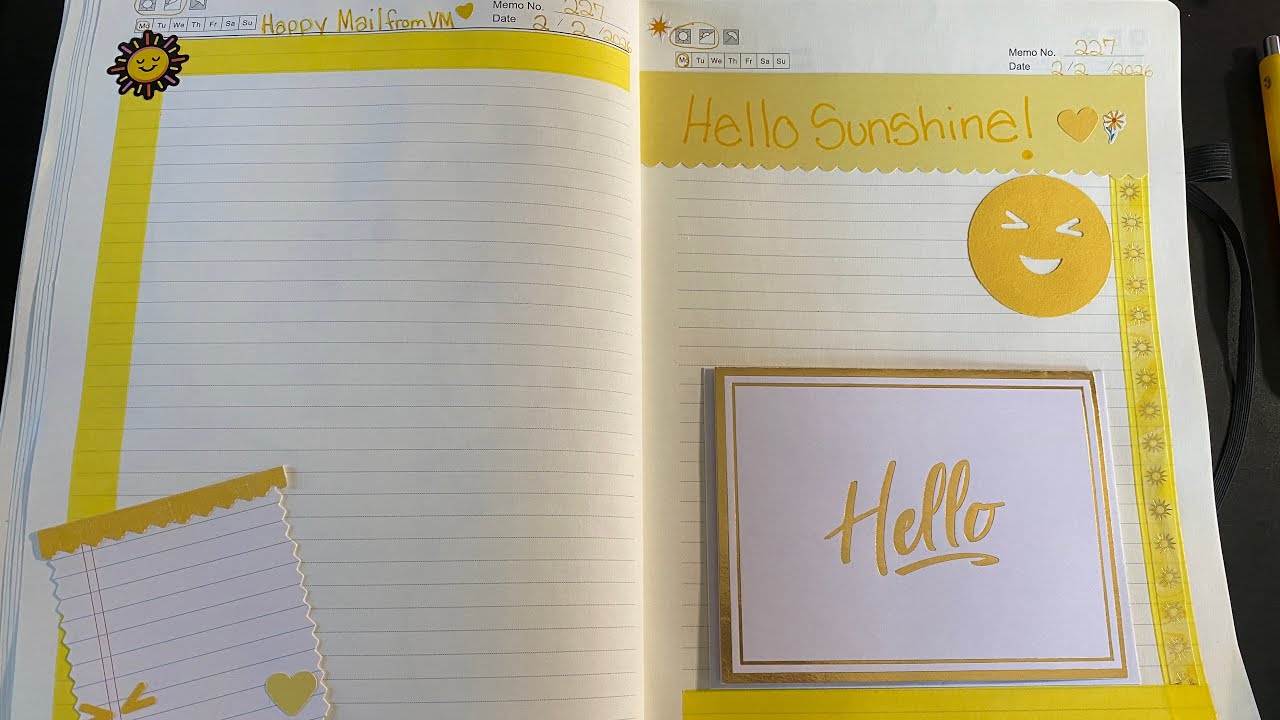 Memo No. 227
Mo Tu We Th Fr Sa Su Happy Mail from VM Date 2/2/2026
Memo No. 227
Mo Tu We Th Fr Sa Su Date 2/2/2026
Hello Sunshine!
Hello